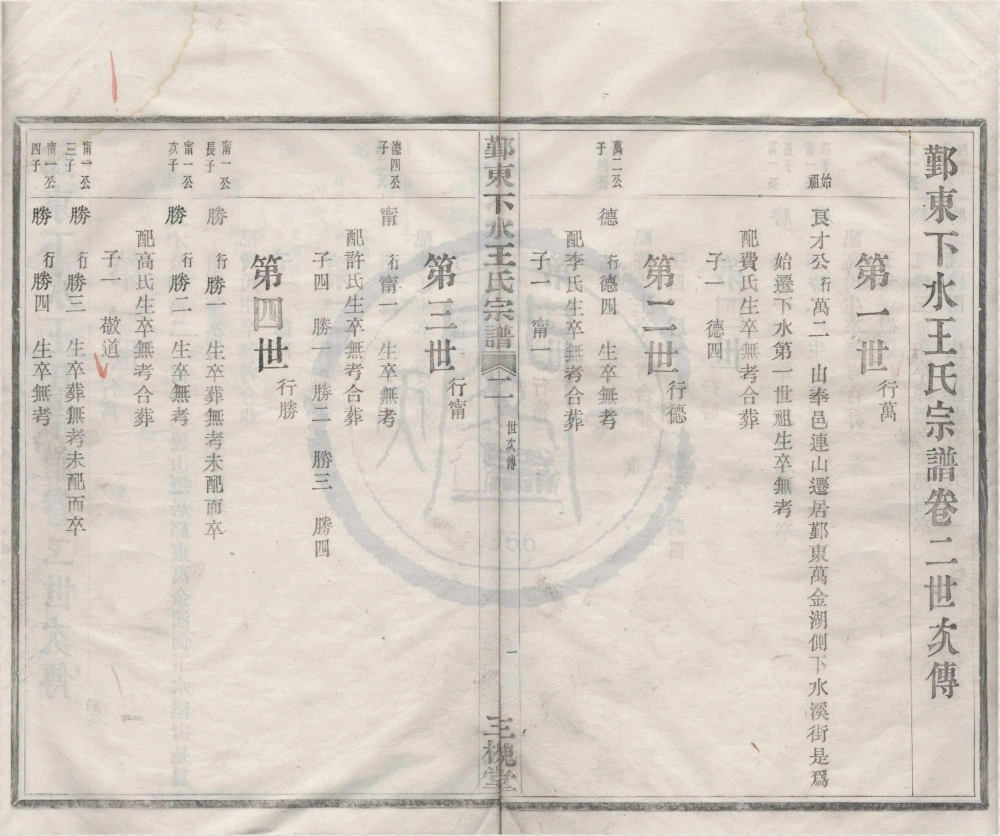 鄞東下水王氏宗譜卷二世次傳
第一世 行萬
始祖
良才公 行萬二 由奉邑連山遷居鄞東萬金湖側下水溪街是爲
始遷下水第一世祖生卒無考
配費氏生卒無考合葬
子一 德四
第二世 行德
萬二公子
德 行德四 生卒無考
配李氏生卒無考合葬
子一 甯一
鄞東下水王氏宗譜 卷二 世次傳 一 三槐堂
第三世 行甯
德四公子
甯 行甯一 生卒無考
配許氏生卒無考合葬
子四 勝一 勝二 勝三 勝四
第四世 行勝
甯一公長子
勝 行勝一 生卒葬無考未配而卒
甯一公次子
勝 行勝二 生卒無考
配高氏生卒無考合葬
子一 敬道
甯一公三子
勝 行勝三 生卒葬無考未配而卒
甯一公四子
勝 行勝四 生卒無考